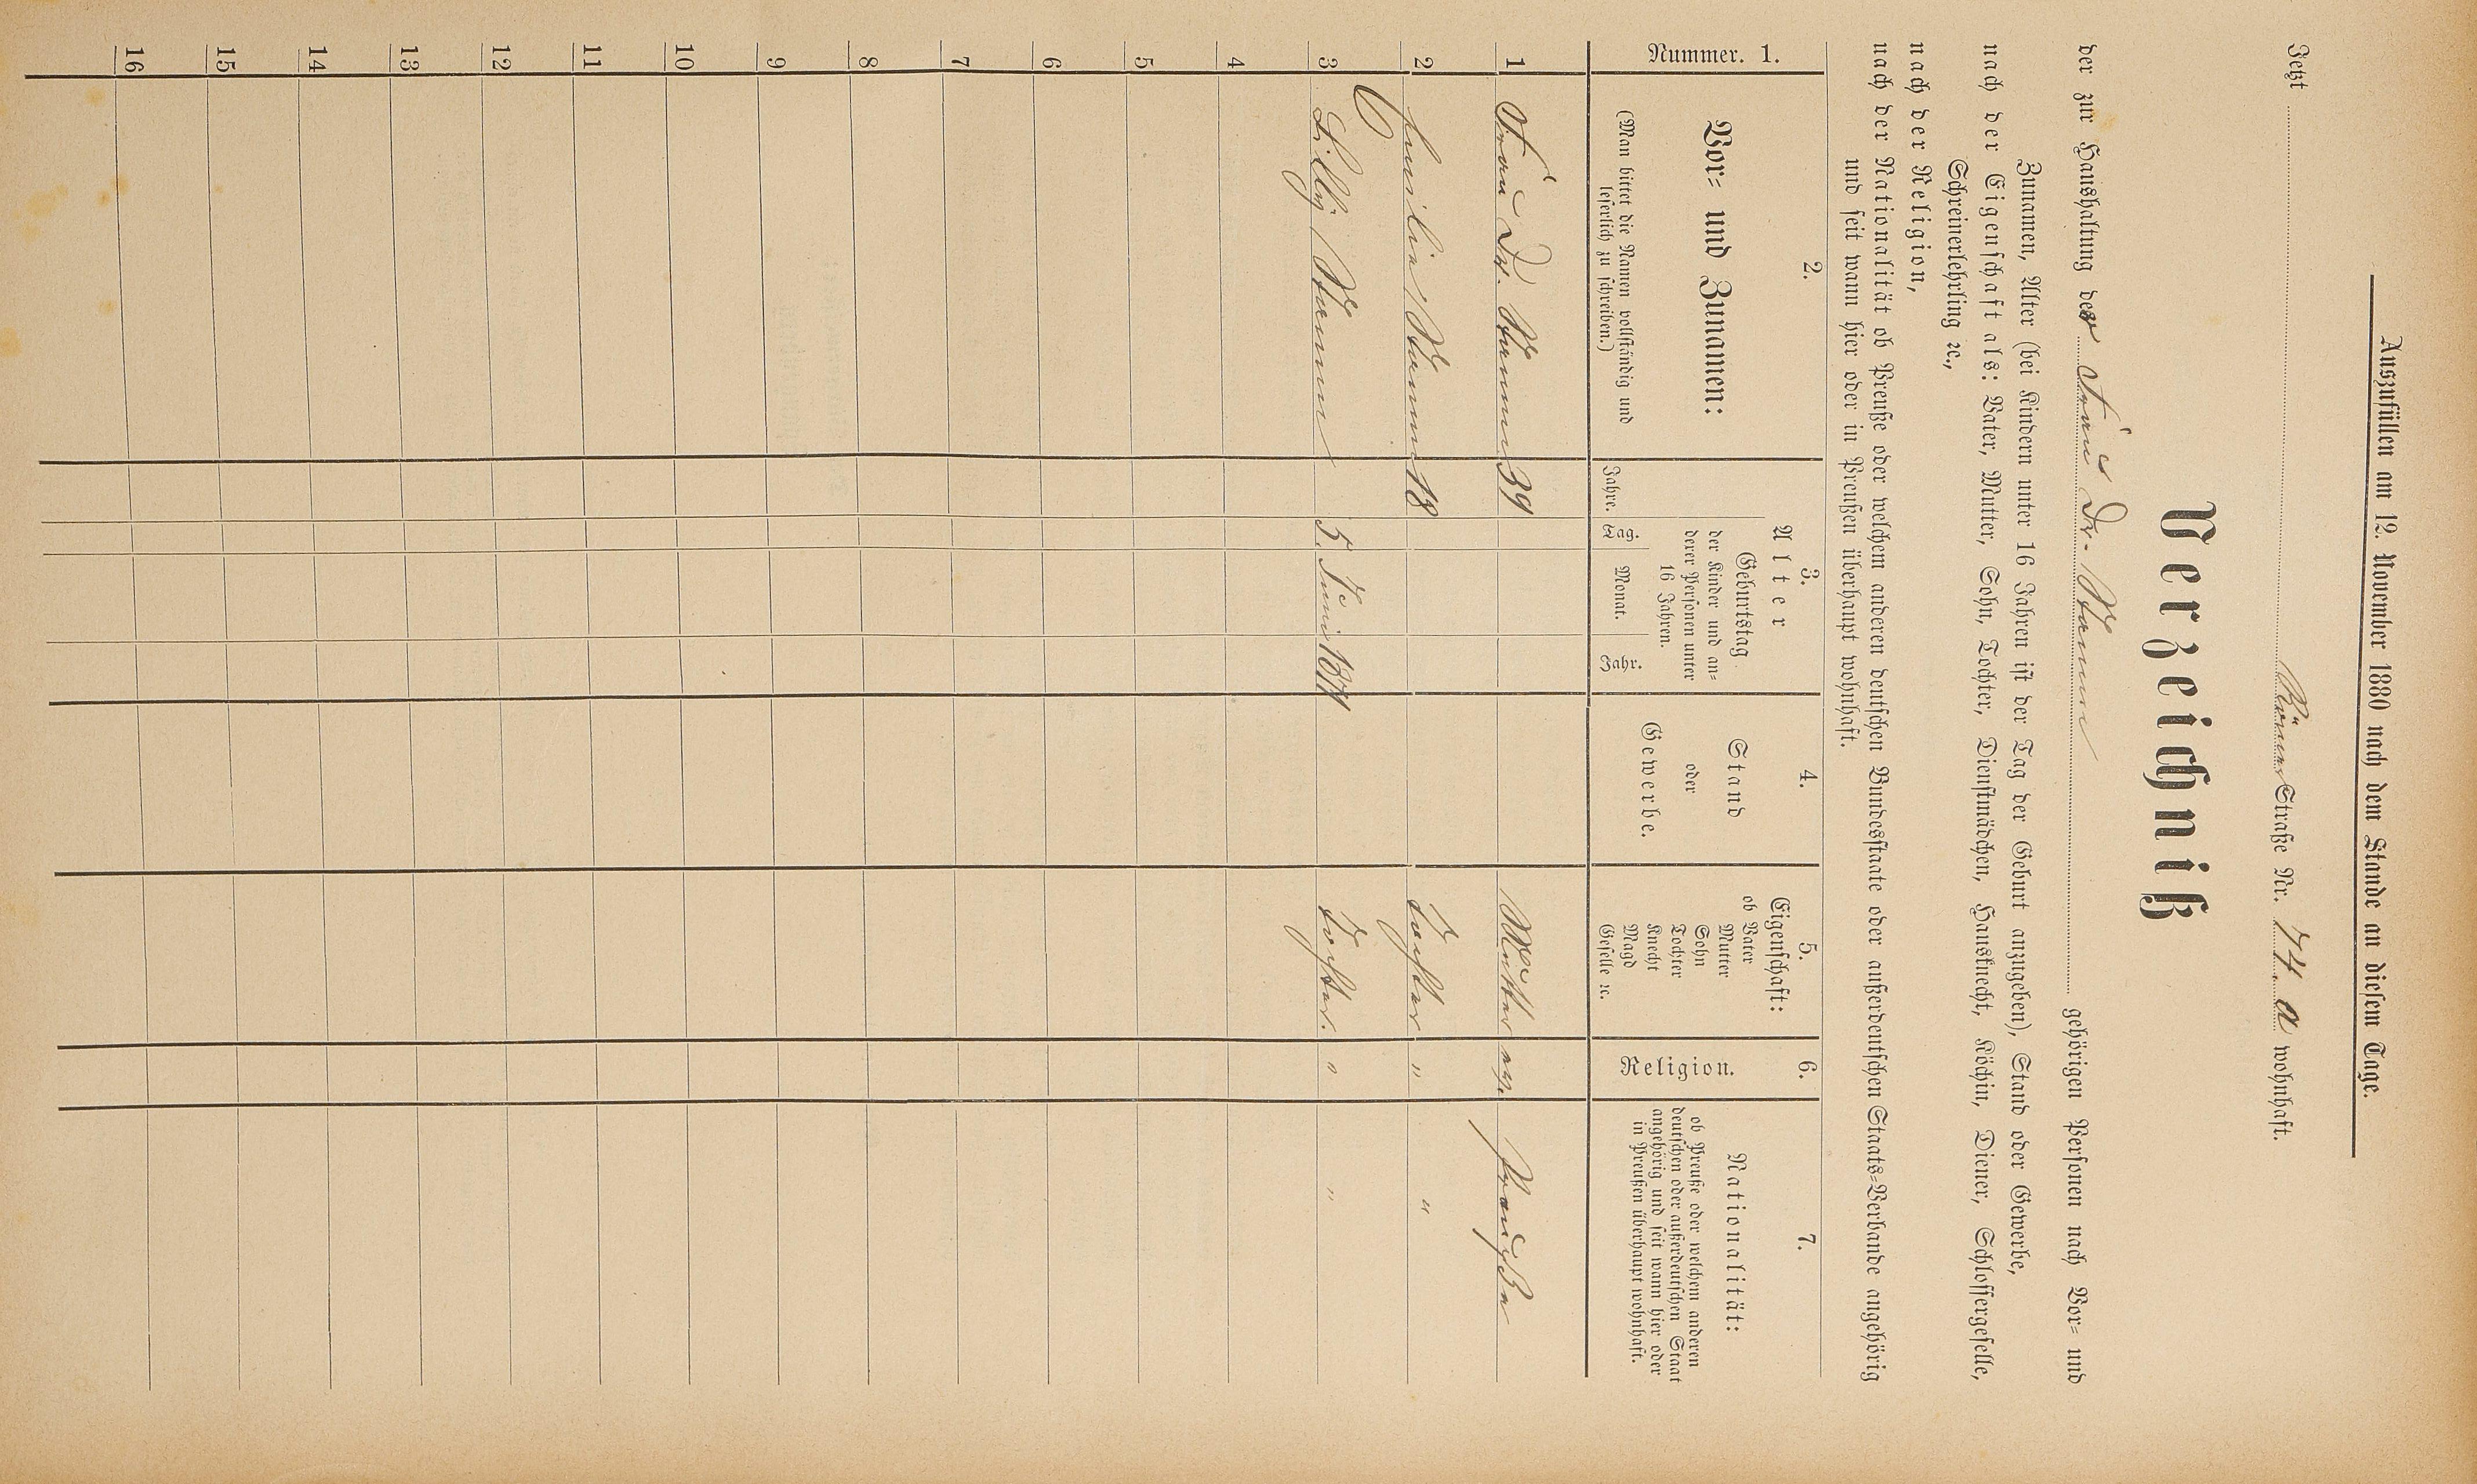 Auszufüllen am 12. November 1880 nach dem Stande an diesem Tage.
Jetzt Straße Nr. 74 a wohnhaft.
Verzeichniß
der zur Haushaltung der Frau Dr. gehörigen Personen nach Vor- und
Zunamen, Alter (bei Kindern unter 16 Jahren ist der Tag der Geburt anzugeben), Stand oder Gewerbe,
nach der Eigenschaft als: Vater, Mutter, Sohn, Tochter, Dienstmädchen, Hausknecht, Köchin, Diener, Schlossergeselle,
Schreinerlehrling ꝛc.,
nach der Religion,
nach der Nationalität ob Preuße oder welchem anderen deutschen Bundesstaate oder außerdeutschen Staats-Verbande angehörig
und seit wann hier oder in Preußen überhaupt wohnhaft.
Nummer. 1.
2.
Vor- und Zunamen:
(Man bittet die Namen vollständig und
leserlich zu schreiben.)
3.
Alter
Jahre.
Geburtstag
der Kinder und an-
derer Personen unter
16 Jahren.
Tag. Monat. Jahr.
4.
Stand
oder
Gewerbe.
5.
Eigenschaft:
ob Vater
Mutter
Sohn
Tochter
Knecht
Magd
Geselle ꝛc.
6.
Religion.
7.
Nationalität:
ob Preuße oder welchem anderen
deutschen oder außerdeutschen Staat
angehörig und seit wann hier oder
in Preußen überhaupt wohnhaft.
1 Frau Dr. 39 Mutter ev. Preuße
2 18 Tochter " "
3 Lilly 5. Juni Tochter. " "
4
5
6
7
8
9
10
11
12
13
14
15
16